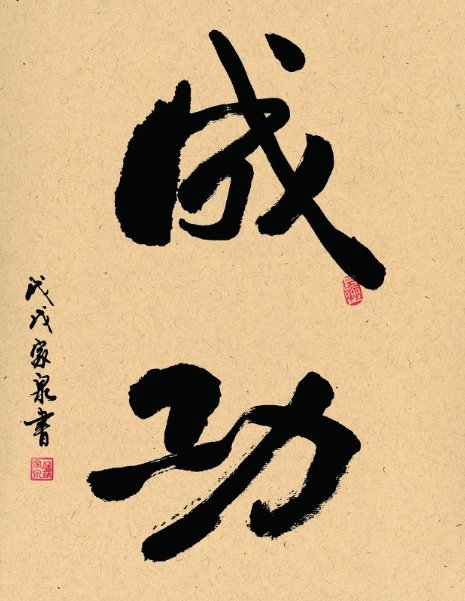 成功
戊戌家泉書